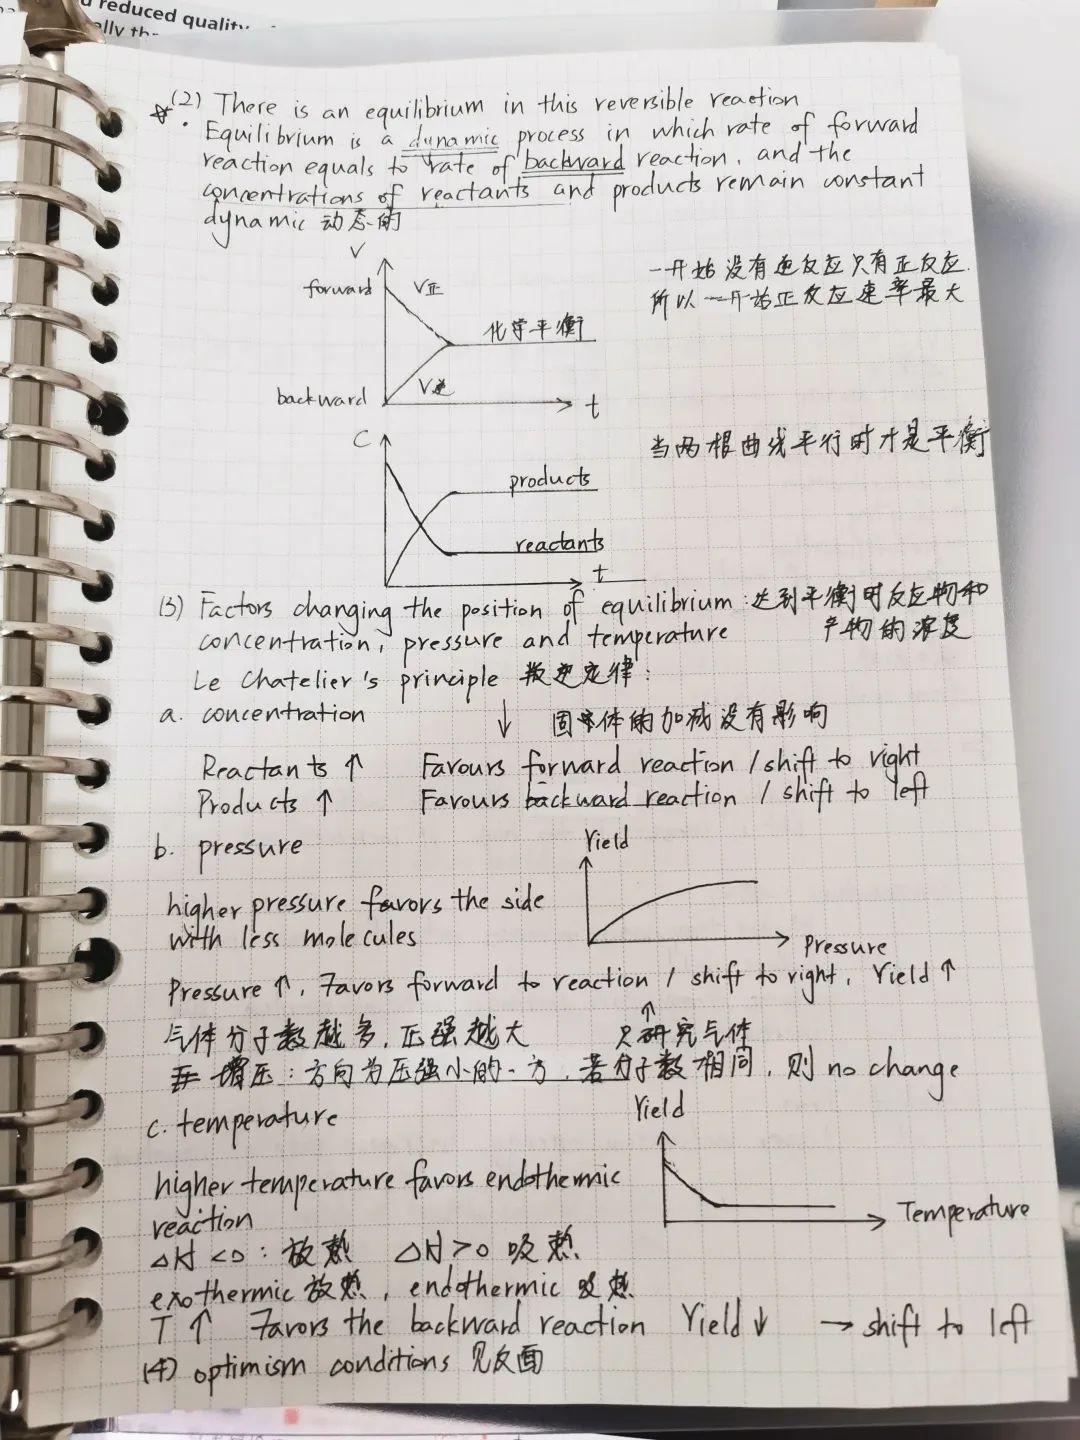 d reduced quality
ally th
☆(2) There is an equilibrium in this reversible reaction
Equilibrium is a dynamic process in which rate of forward
reaction equals to rate of backward reaction, and the
concentrations of reactants and products remain constant
dynamic 动态的
V
forward V正
一开始没有逆反应只有正反应.
所以一开始正反应速率最大
化学平衡
V逆
backward
t
C
当两根曲线平行时才是平衡
products
reactants
t
(3) Factors changing the position of equilibrium: 达到平衡时反应物和
产物的浓度
concentration, pressure and temperature
Le Chatelier's principle 叛逆定律:
a. concentration ↓ 固体的加减没有影响
Reactants ↑ Favours forward reaction / shift to right
Products ↑ Favours backward reaction / shift to left
b. pressure
Yield
higher pressure favors the side
with less molecules
Pressure
Pressure ↑, Favors forward to reaction / shift to right, Yield ↑
气体分子数越多, 压强越大 ↑ 只研究气体
增压: 方向为压强小的一方, 若分子数相同, 则 no change
c. temperature
Yield
higher temperature favors endothermic
reaction
Temperature
△H <0: 放热 △H >0 吸热
exothermic 放热, endothermic 吸热
T ↑ Favors the backward reaction Yield ↓ → shift to left
(4) optimism conditions 见反面